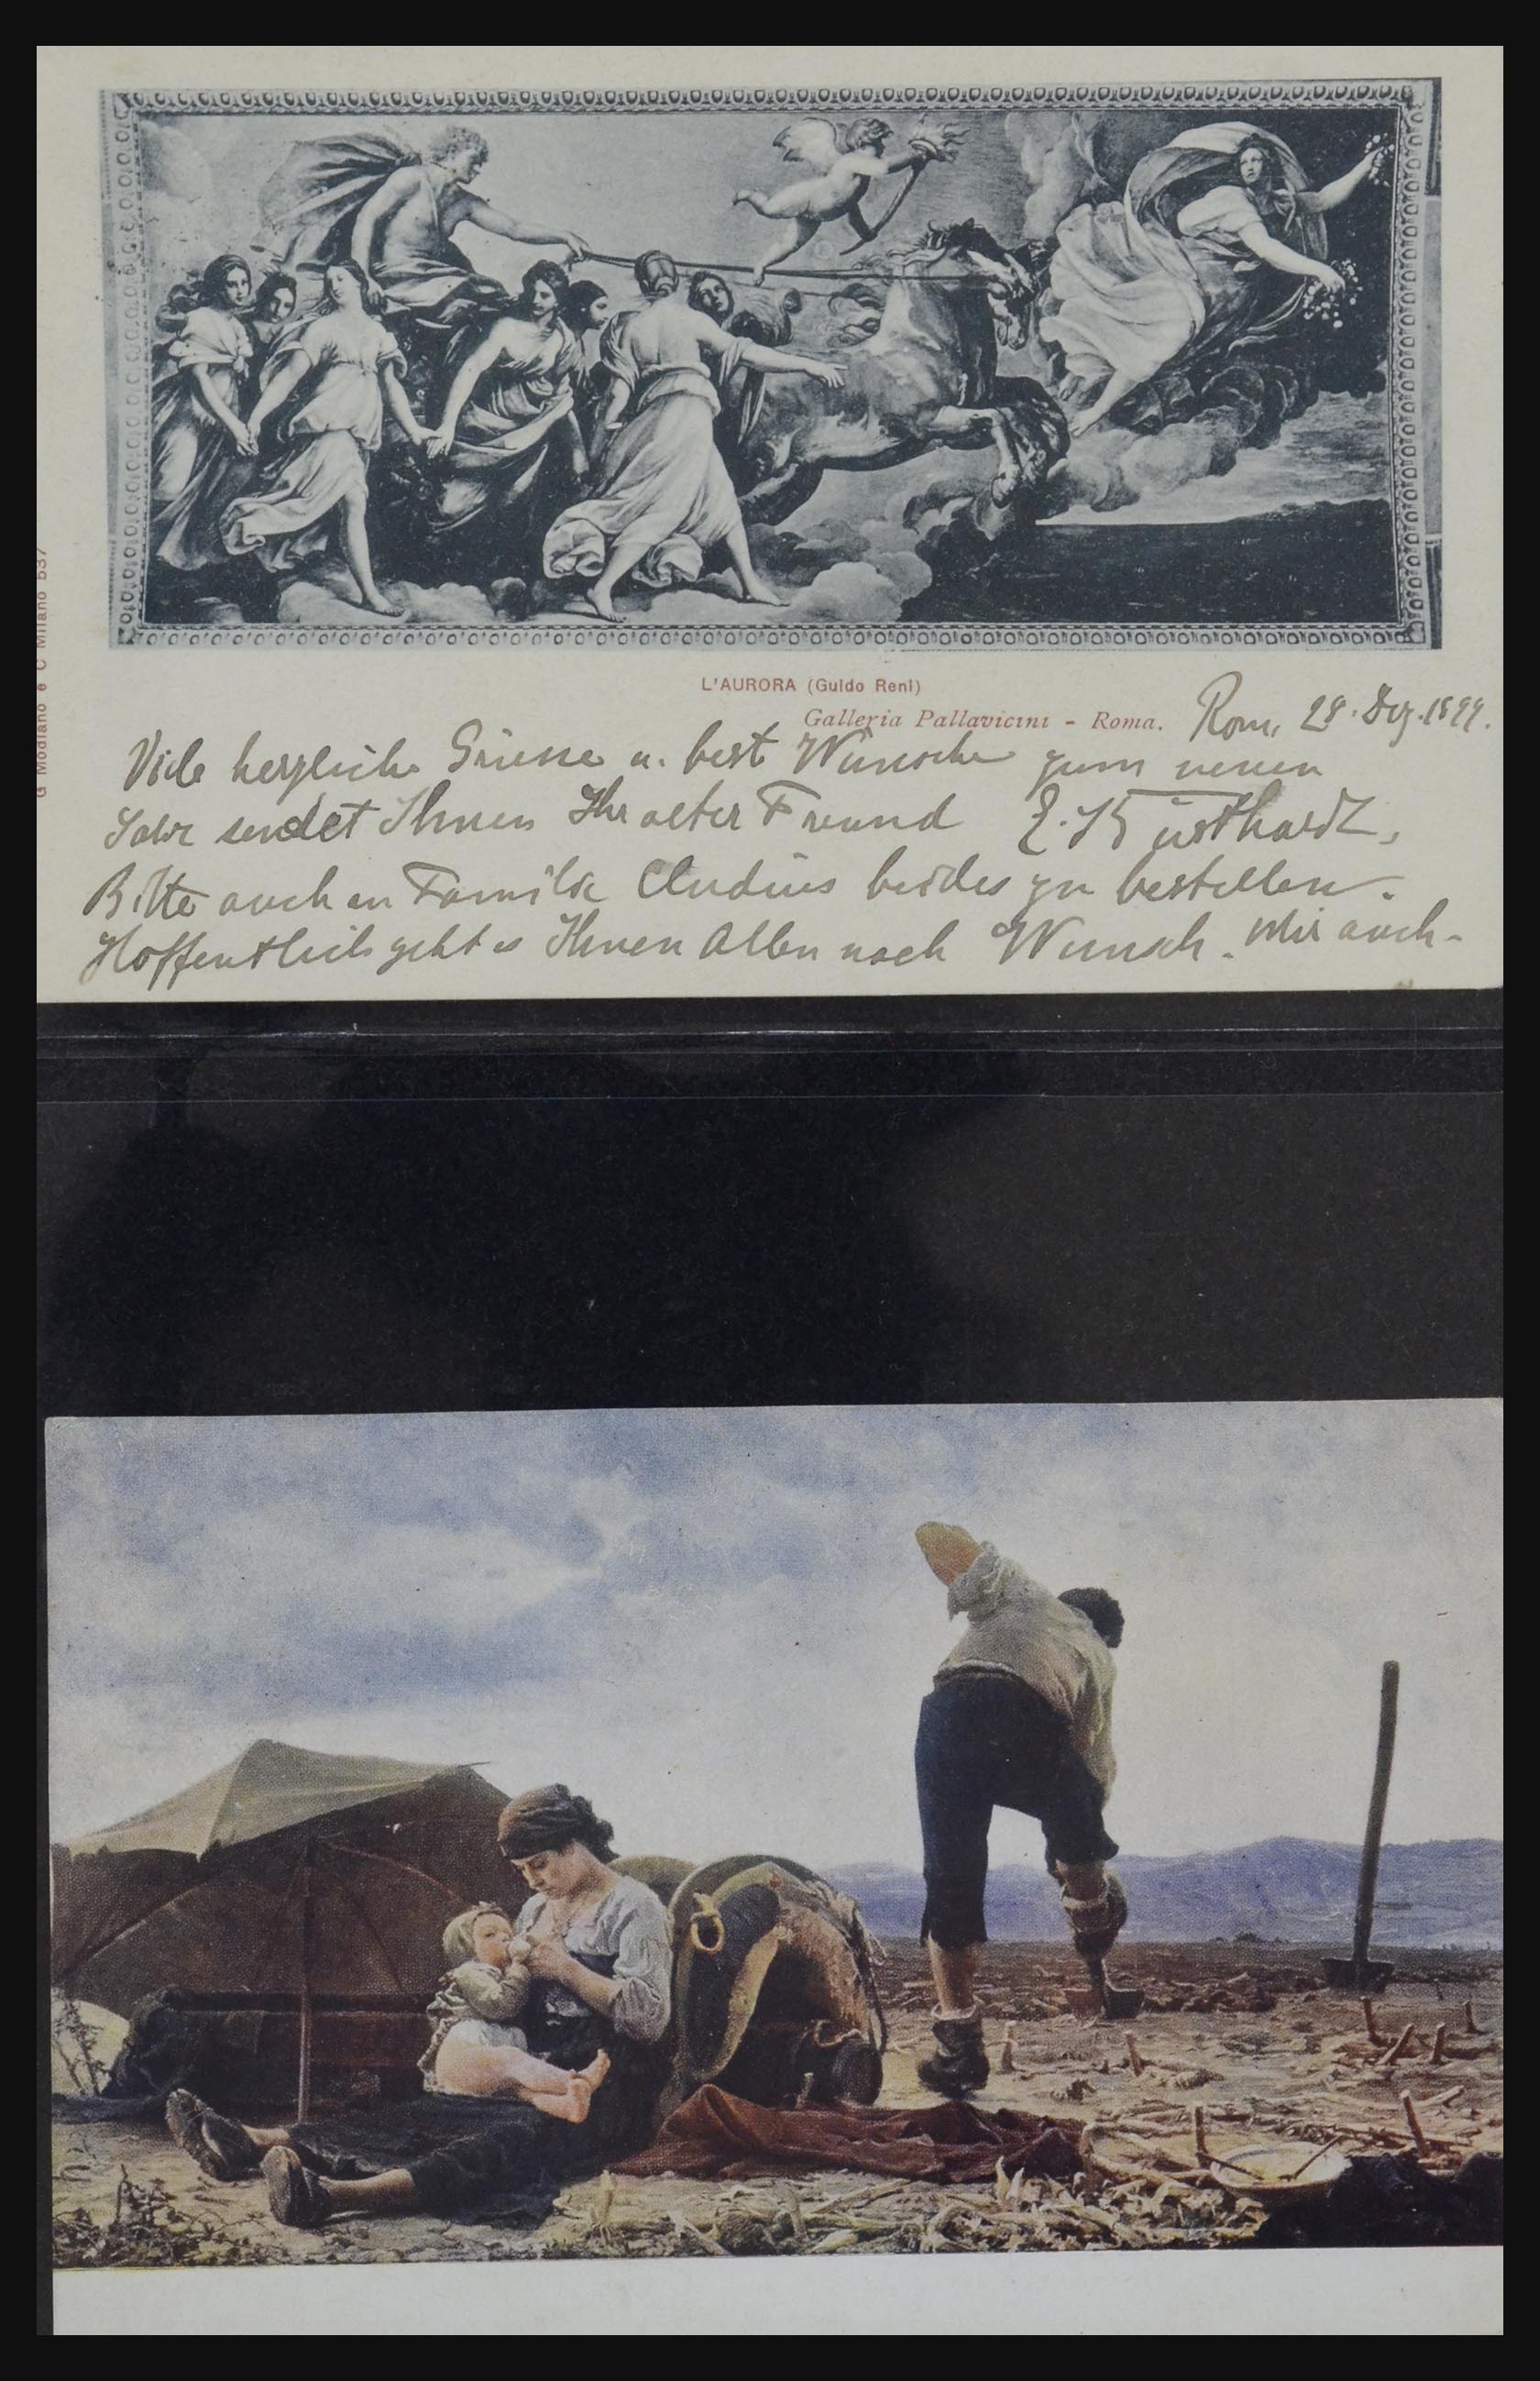 L'AURORA (Guido Reni)
Galleria Pallavicini - Roma.
Rom, 28. Dez. 1899.
Viele herzliche Grüsse u. best Wünsche zum neuen
Jahr sendet Ihnen Ihr alter Freund E. Küsthardt,
Bitte auch an Familie beides zu bestellen.
Hoffentlich geht es Ihnen Allen nach Wunsch. Mir auch.
G Modiano e C Milano 537